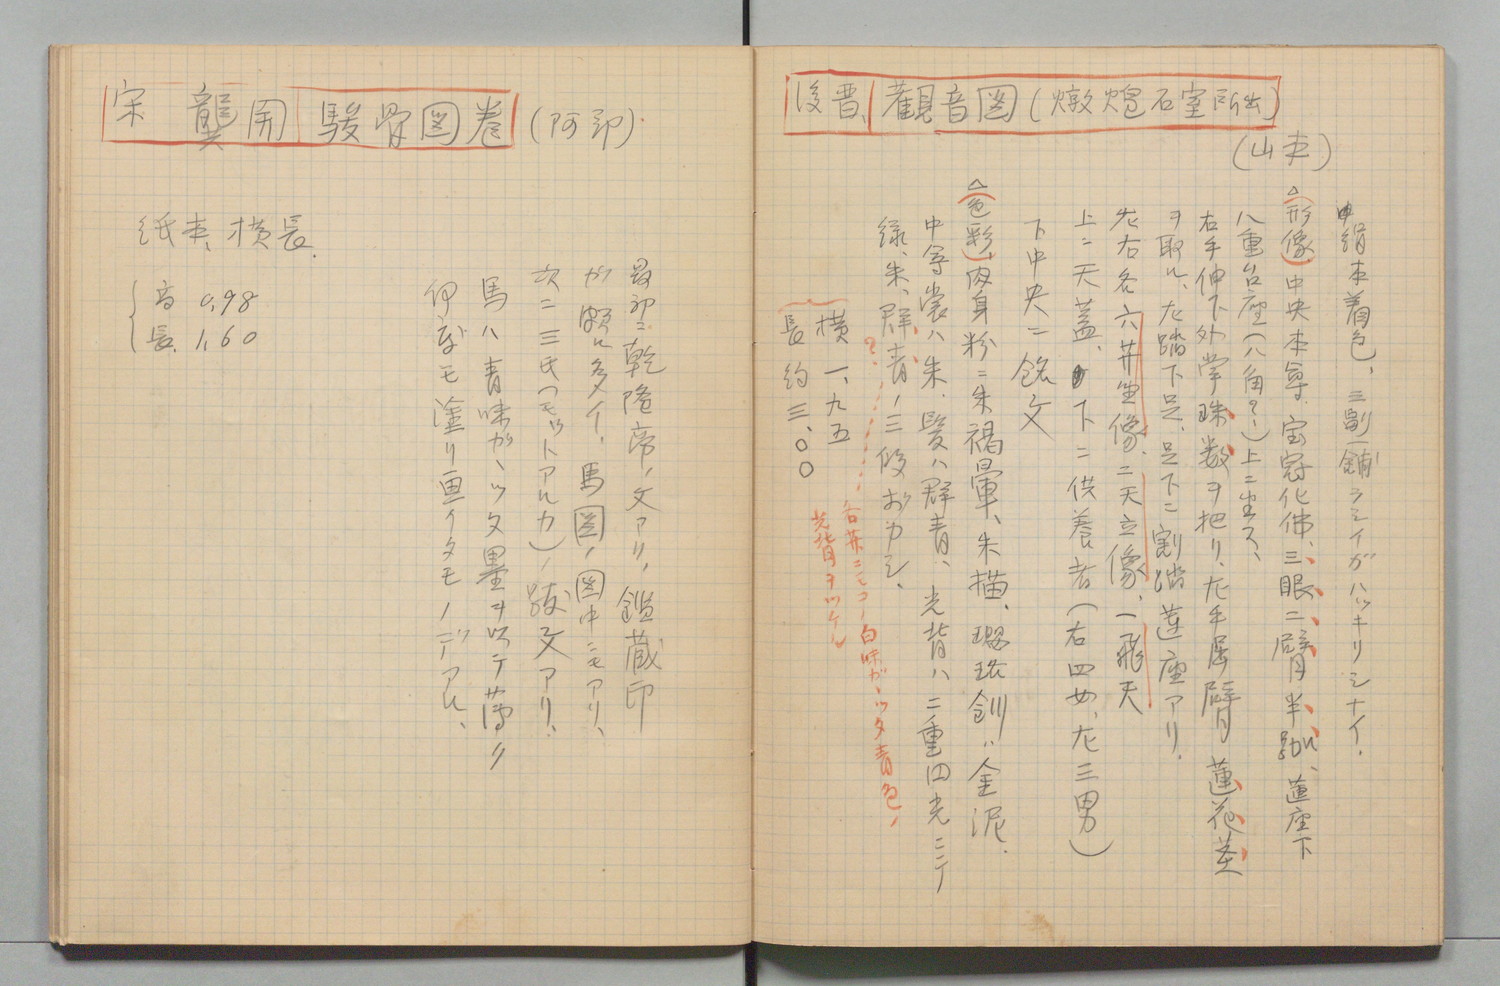 後晋、觀音図(燉煌石室所出)
(山本)
絹本着色、三副一鋪ラシイガハッキリシナイ.
△(形像)中央本尊.宝冠化佛、三眼二臂半跏、蓮座下
八重台座(八角?)上ニ坐ス、
右手伸下外掌珠数ヲ把リ、左手屈臂蓮花茎
ヲ取ル、左踏下足、足下ニ割踏蓮座アリ.
左右各六井坐像、二天立像、一飛天
上ニ天蓋、下ニ供養者(右四女、左三男)
下中央ニ銘文
△(色彩)、肉身粉ニ朱褐暈、朱描、瓔珞釧ハ金泥.
中尊裳ハ朱.髪ハ群青、光背ハ二重円光ニテ
緑、朱、群青ノ三段ボカシ、
?……各井ニモコノ白味ガヽッタ青色ノ
光背ヲツケル
横 一、九五
長 約 三.〇〇
宋 龔開 駿骨図巻(阿部)
紙本、横長.
高 0,98
長、1,60
最初ニ乾隆帝ノ文アリ、鑑蔵印
ガ頗ル多イ、馬図ノ図中ニモアリ、
次ニ三氏(モットアルカ)ノ跋文アリ.
馬ハ青味ガヽッタ墨ヲ以テ薄ク
何度モ塗リ画イタモノデアル、